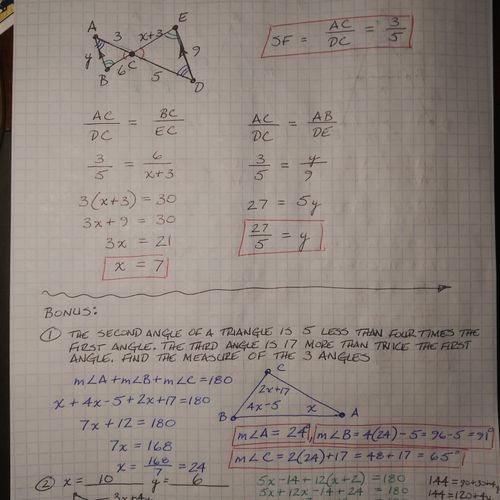 A 3 x+3 E
y 6 C 9
B 5 D
SF = AC/DC = 3/5
AC/DC = BC/EC
3/5 = 6/x+3
3(x+3) = 30
3x+9 = 30
3x = 21
x = 7
AC/DC = AB/DE
3/5 = y/9
27 = 5y
27/5 = y
BONUS:
① THE SECOND ANGLE OF A TRIANGLE IS 5 LESS THAN FOUR TIMES THE
FIRST ANGLE. THE THIRD ANGLE IS 17 MORE THAN TWICE THE FIRST
ANGLE. FIND THE MEASURE OF THE 3 ANGLES
m∠A + m∠B + m∠C = 180
x + 4x - 5 + 2x + 17 = 180
7x + 12 = 180
7x = 168
x = 168/7 = 24
C
2x+17
B 4x-5 x A
m∠A = 24°, m∠B = 4(24) - 5 = 96 - 5 = 91°
m∠C = 2(24) + 17 = 48 + 17 = 65°
② x = 10 y = 6
5x - 14 + 12(x + 2) = 180
5x + 12x - 14 + 24 = 180